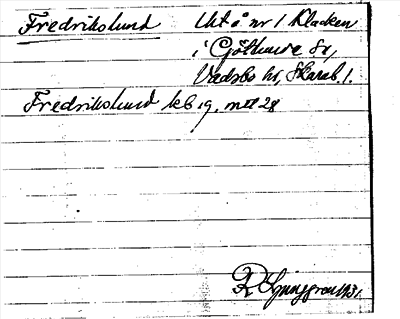 Fredrikslund Uht å nr 1 Klacken
i Götlunda sn,
Vadsbo hd, Skarab. l.
Fredrikslund kb 19. mtl 28
R Ljunggren 1931.